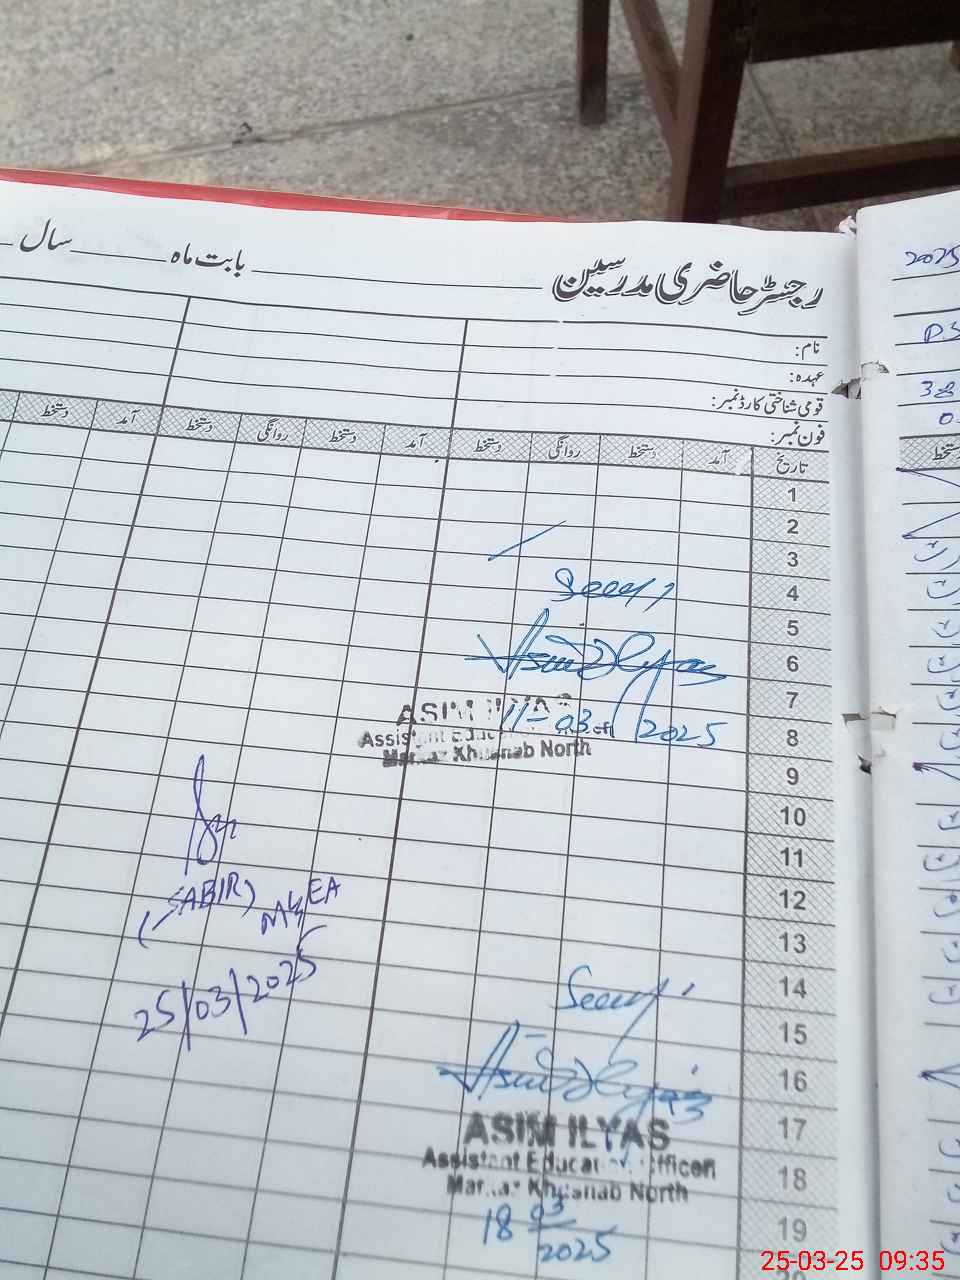 رجسٹر حاضری مدرسین
بابت ماہ
سال
نام:
عہدہ:
قومی شناختی کارڈ نمبر:
فون نمبر:
تاریخ آمد دستخط روانگی دستخط آمد دستخط روانگی دستخط آمد دستخط
1
2
3
4
Seen,
5
6
Asim Ilyas
7
8
11-03-2025
ASIM ILYAS
Assistant Education
Markaz Khushab North
9
10
11
12
13
(SABIR)
MEA
25/03/2025
14
Seen,
15
16
Asim Ilyas
17
ASIM ILYAS
18
Assistant Education Officer
Markaz Khushab North
19
18 03
2025
2025
38
25-03-25 09:35